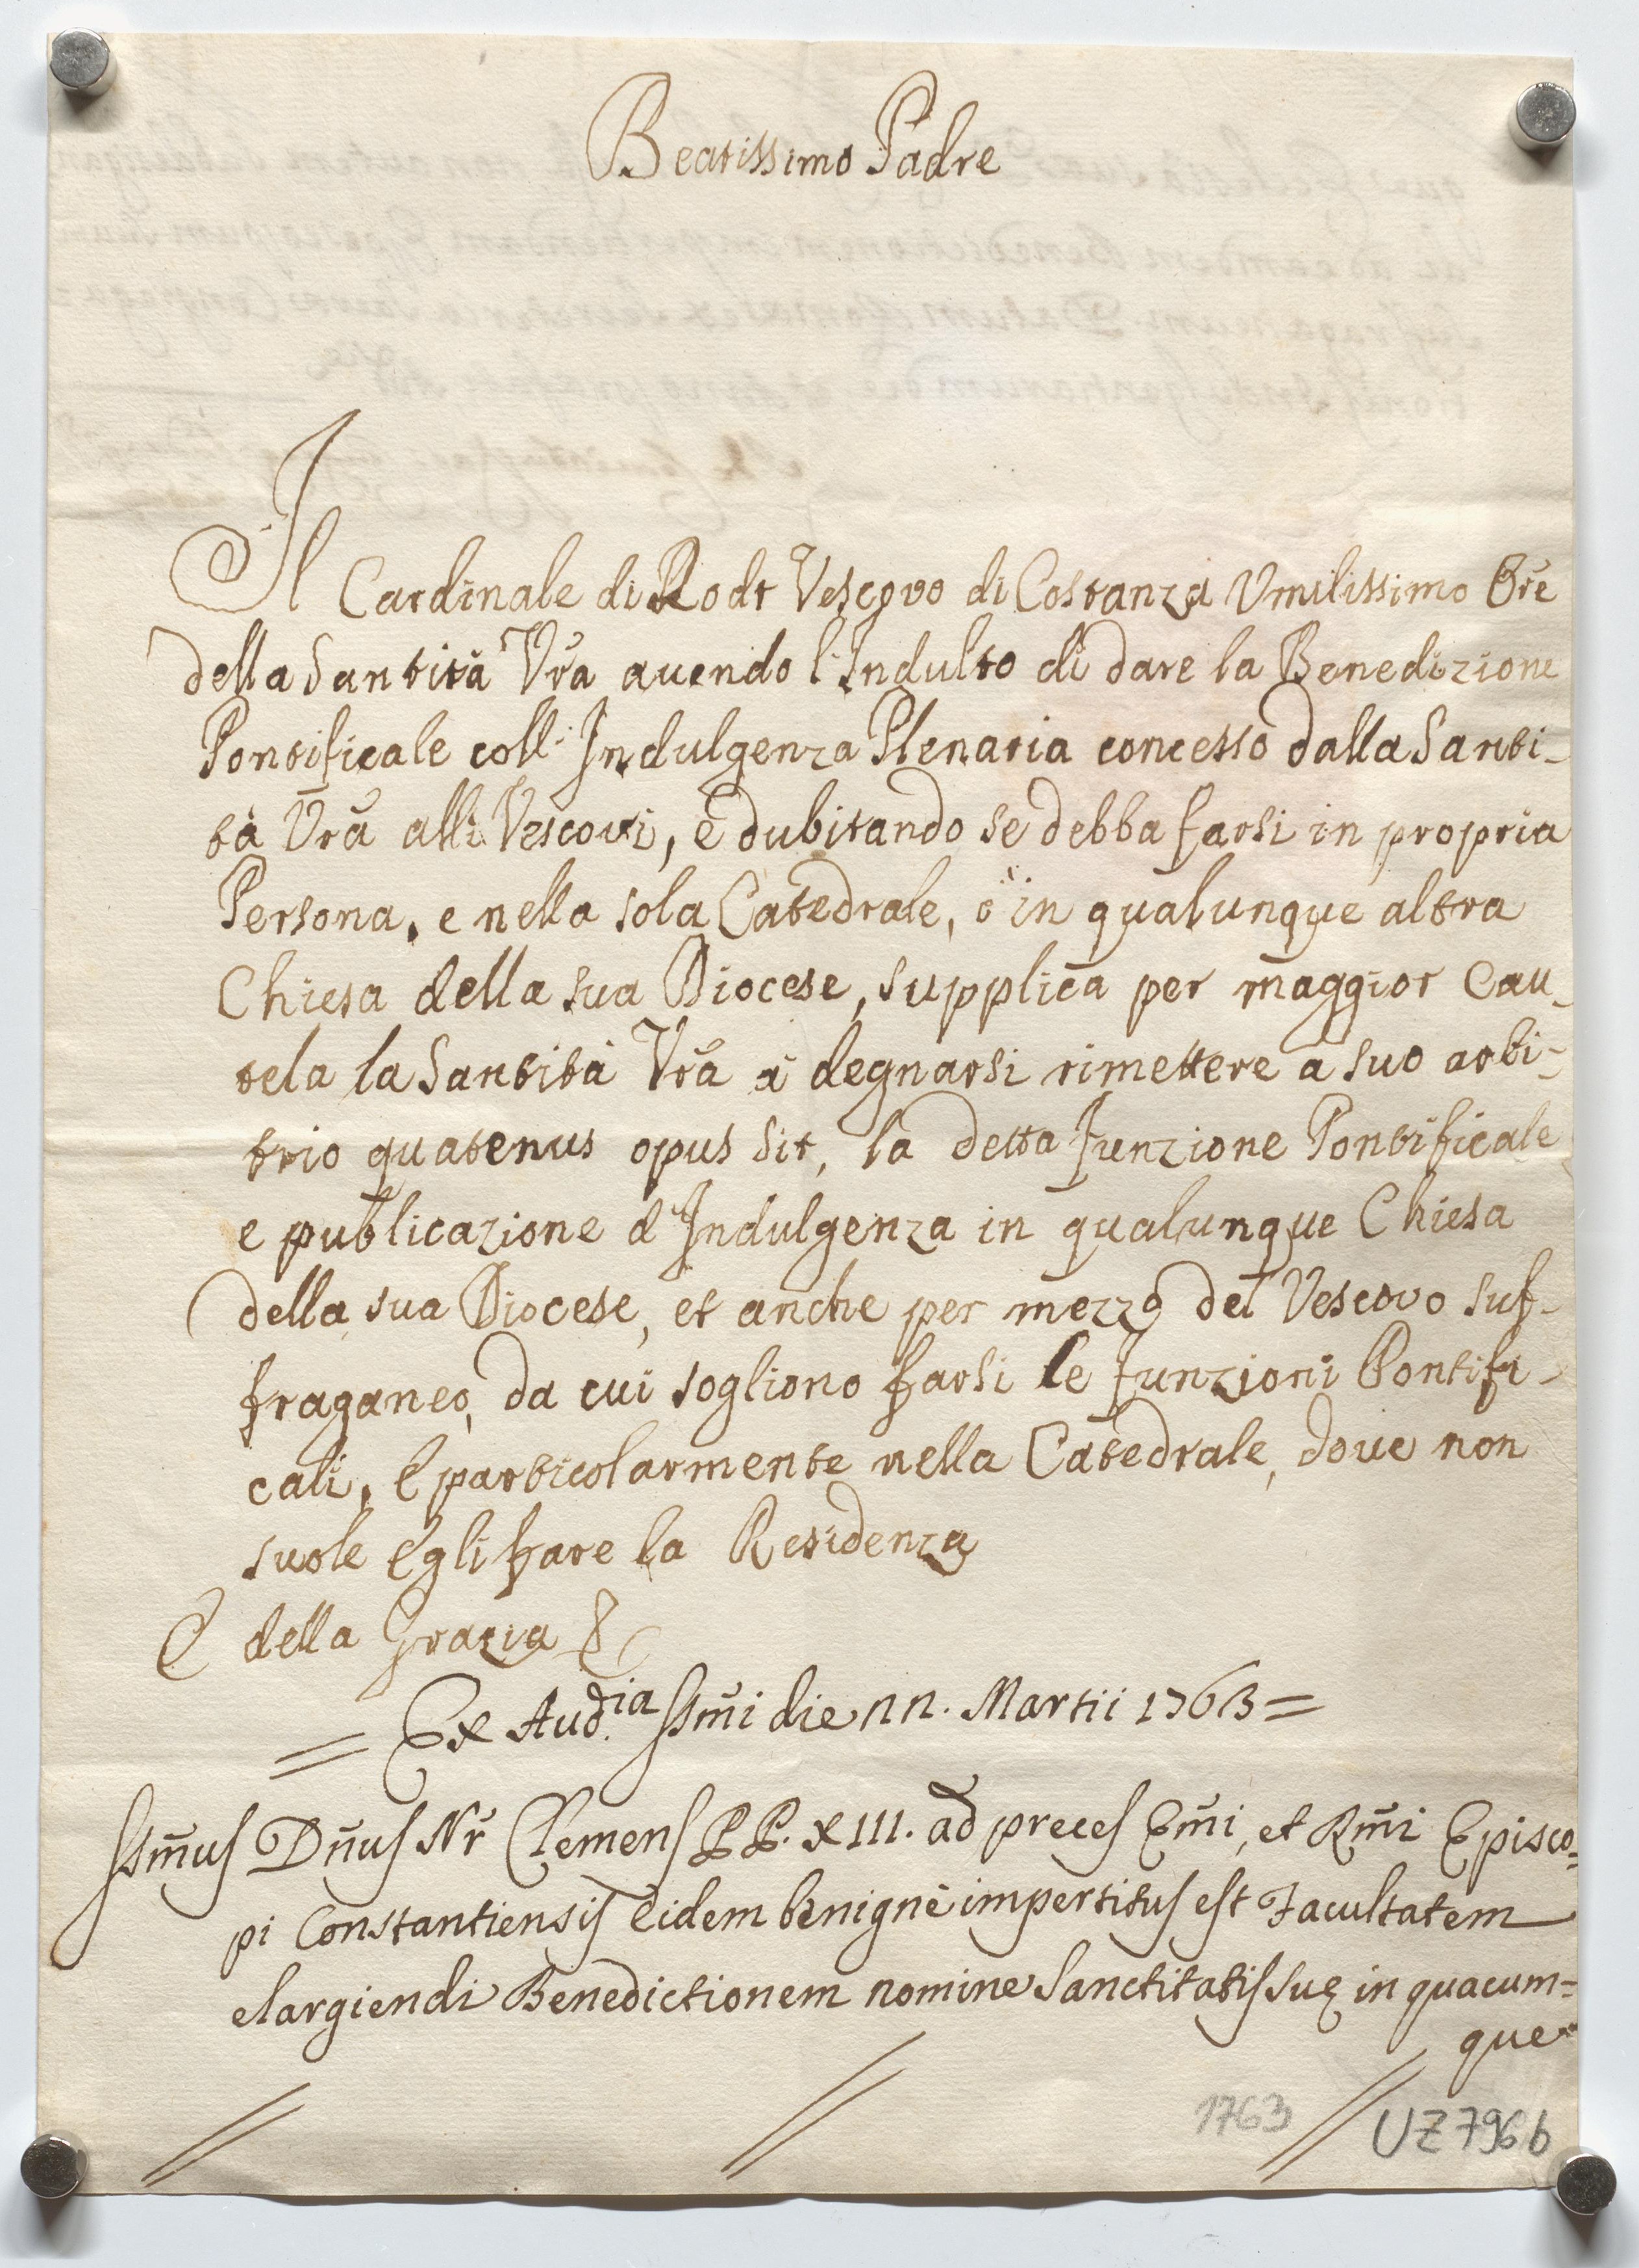 Beatissimo Padre
Il Cardinale di Rodt Vescovo di Costanza Umilissimo Ore
della Santità Vra avendo l'Indulto di dare la Benedizione
Pontificale coll' Indulgenza Plenaria concesso dalla Santi-
tà Vra alli Vescovi, e dubitando se debba farsi in propria
Persona, e nella sola Catedrale, ò in qualunque altra
Chiesa della sua Diocese, supplica per maggior Cau-
tela la Santità Vra à degnarsi rimettere a suo arbi-
trio quatenus opus sit, la detta funzione Pontificale
e publicazione d'Indulgenza in qualunque Chiesa
della sua Diocese, et anche per mezzo del Vescovo suf-
fraganeo, da cui sogliono farsi le funzioni Pontifi-
cali, e particolarmente nella Catedrale, dove non
suole egli fare la Residenza
E della Grazia &
= Ex Aud.ia SSmi die 22. Martii 1763 =
SSmus Dnus Nr Clemens PP. XIII. ad preces Emi, et Rmi Episco=
pi Constantiensis eidem benignè impertitus est Facultatem
elargiendi Benedictionem nomine Sanctitatis Suę in quacum=
que
1763 UZ 796 b